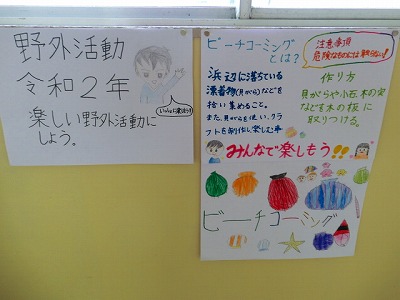 野外活動
令和2年
楽しい野外活動に
しよう。
ビーチコーミング
とは?
注意事項
危険なものには触らない!
浜辺に落ちている
漂着物(貝がら)などを
拾い集めること。
また、貝がらを使い、クラ
フトを制作し楽しむ事
作り方
貝がらや小石、木の実
などを木の板に
取りつける。
みんなで楽しもう!!
ビーチコーミング